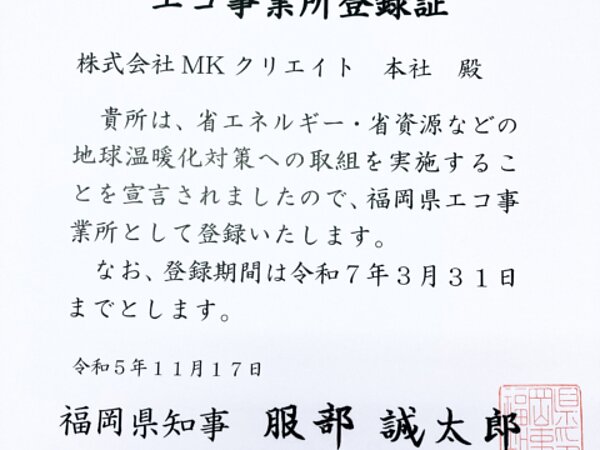 エコ事業所登録証
株式会社MKクリエイト　本社　殿
貴所は、省エネルギー・省資源などの
地球温暖化対策への取組を実施するこ
とを宣言されましたので、福岡県エコ事
業所として登録いたします。
なお、登録期間は令和７年３月３１日
までとします。
令和５年１１月１７日
福岡県知事　服部　誠太郎